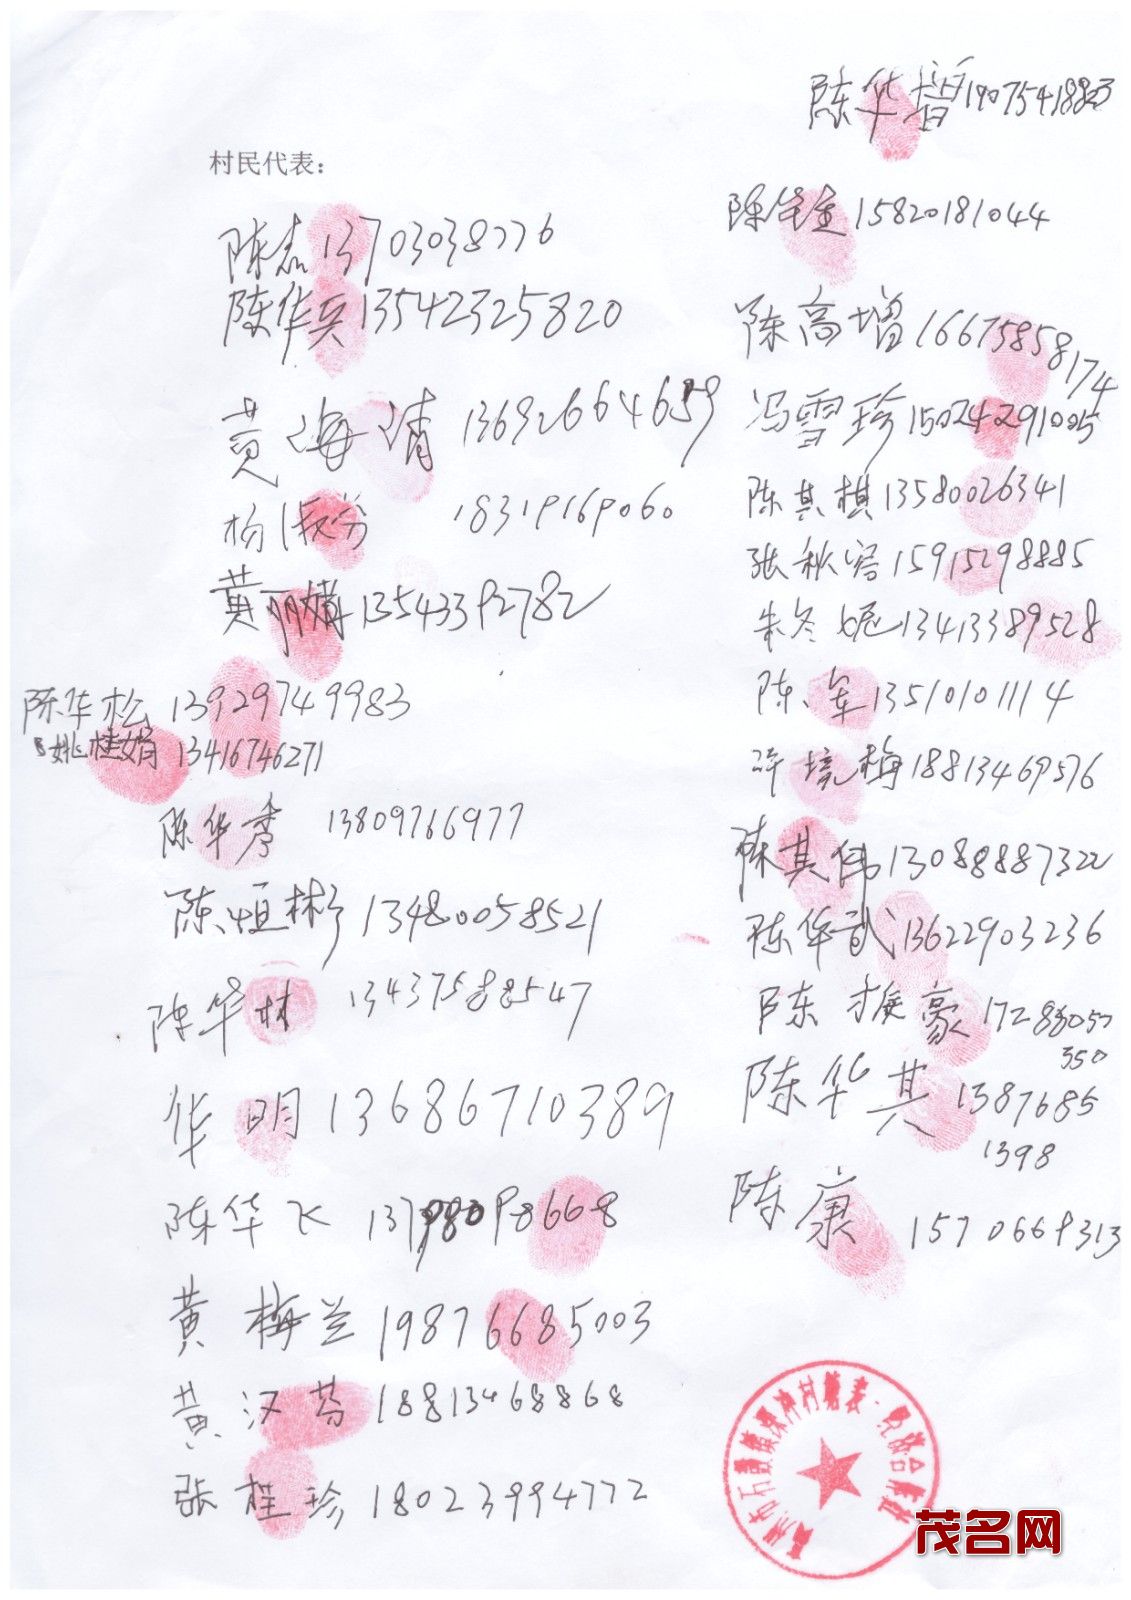 陈华 19075418803
村民代表：
陈磊 13703038776
陈华兵 13542325820
黄海清 13692664659
杨淑芬 18319169060
黄丽娟 13543392782
陈华松 13929749983
姚桂娟 13416746271
陈华秀 13809766977
陈恒彬 13480058521
陈华林 13437588547
华明 13686710389
陈华飞
黄梅兰 19876685003
黄汉芬 18813468868
张桂珍 18023994772
陈华金 15820181044
陈高增 16675858174
冯雪珍 15024291005
陈其棋 13580026341
张秋容 15915298885
朱冬妮 13413389528
陈军 13510101114
许境梅 18813469576
陈其伟 13088887322
陈华武 13622903236
陈 豪
陈华其 1387685
1398
陈康 15706669313
茂名网